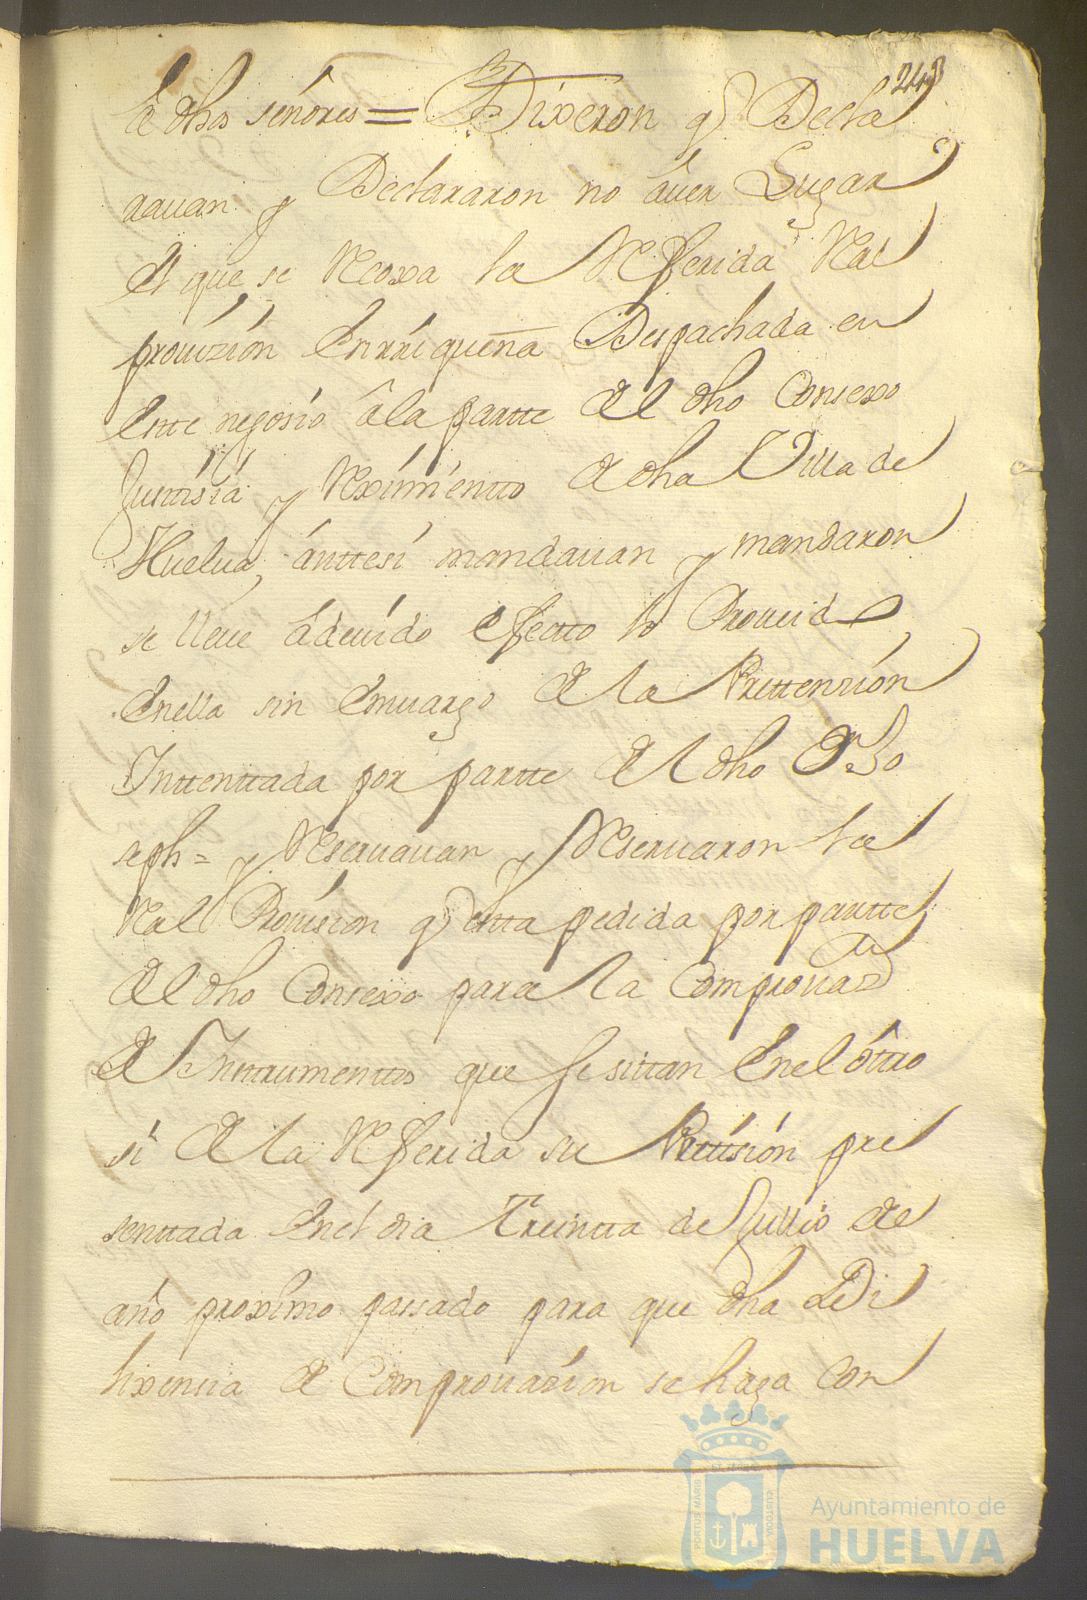 243
de dhos señores = Dixeron q Decla
rauan y Declararon no áuer Lugar
el que se Recoxa la Referida Rˡ
prouizión Enrriqueña Despachada en
Este negosio â la partte del dho Consexo
Justisia y Reximientto de dha Villa de
Huelua, ánttesí mandauan y mandaron
se lleue â deuído efecto lo Proueido
Enella sin Emuargo de la Prettenzión
Inttenttada por partte del dho Dn Jo
seph = y Reseruauan y Reseruaron la
Real Prouision q estta pedida por partte
del dho Consexo para la Comprouazⁿ
de Insttrumenttos que se sittan Enel óttro
sí de la Referida su Pettisión pre
senttada Enel dia Treintta de Jullio de
año proximo passado para que dha Di
lixensia de Comprouazíon se haga con
PORTUS MARIS ET TERRAE CUSTODIA
Ayuntamiento de
HUELVA